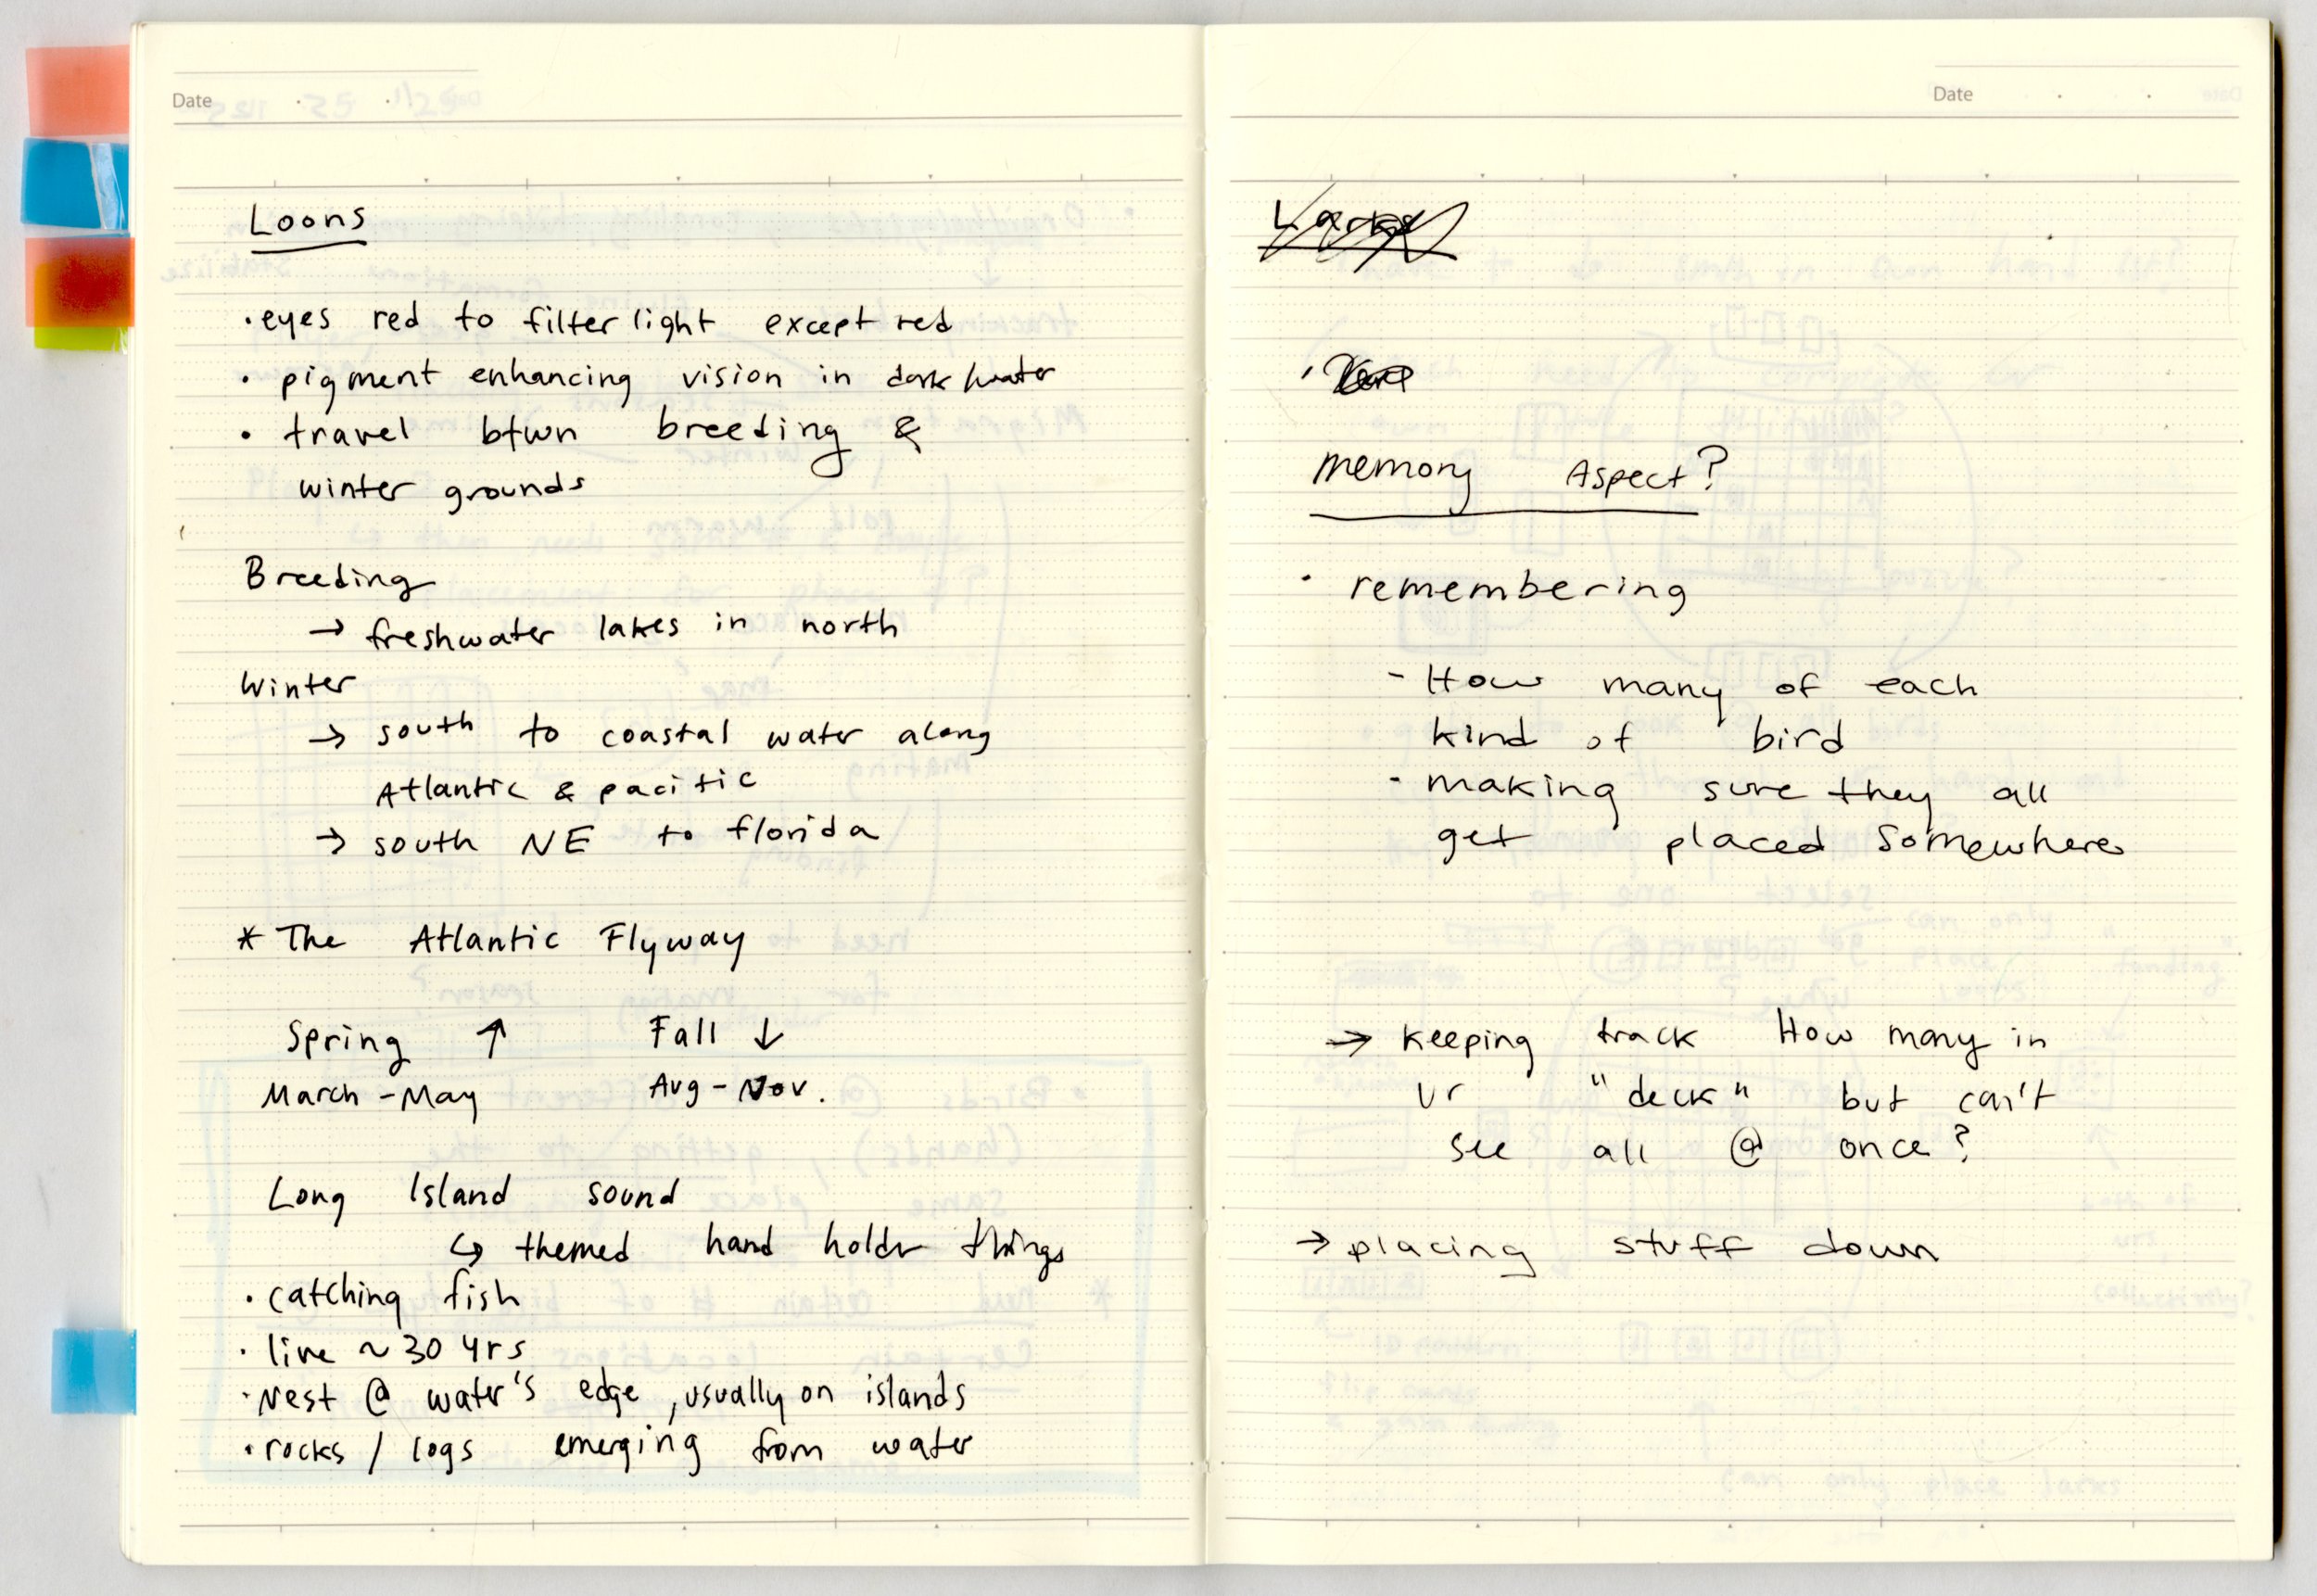 Date
Loons
• eyes red to filter light except red
• pigment enhancing vision in dark water
• travel btwn breeding &
winter grounds
Breeding
→ freshwater lakes in north
Winter
→ south to coastal water along
Atlantic & pacific
→ south NE to florida
* The Atlantic Flyway
Spring ↑ Fall ↓
March - May Aug - Nov.
Long Island sound
↳ themed hand holdr things
• catching fish
• live ~ 30 yrs
• Nest @ water's edge, usually on islands
• rocks / logs emerging from water
Date
Memory Aspect?
• remembering
- How many of each
kind of bird
- making sure they all
get placed somewhere
→ keeping track How many in
ur "deck" but can't
see all @ once?
→ placing stuff down